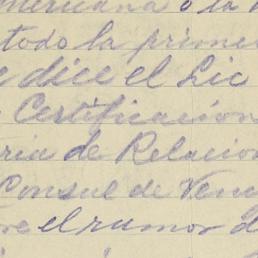 mericana o la
todo la prime
dice el Lic
Certificacion
ria de Relacion
Consul de Venez
el rumor d